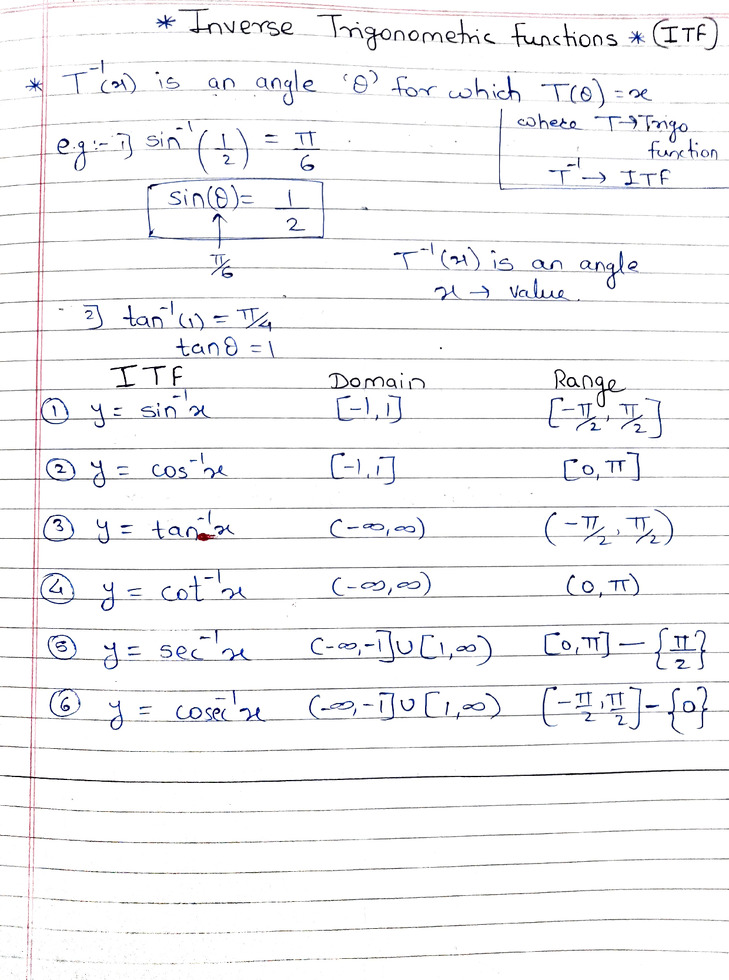 * Inverse Trigonometric functions * (ITF)
* T⁻¹(x) is an angle 'θ' for which T(θ) = x
where T → Trigo
function
T⁻¹ → ITF
e.g:- 1] sin⁻¹(1/2) = π/6
sin(θ) = 1/2
↑
π/6
T⁻¹(x) is an angle
x → value.
2] tan⁻¹(1) = π/4
tanθ = 1
ITF Domain Range
① y = sin⁻¹x [-1,1] [-π/2, π/2]
② y = cos⁻¹x [-1,1] [0, π]
③ y = tan⁻¹x (-∞,∞) (-π/2, π/2)
④ y = cot⁻¹x (-∞,∞) (0, π)
⑤ y = sec⁻¹x (-∞,-1]∪[1,∞) [0,π] — {π/2}
⑥ y = cosec⁻¹x (-∞,-1]∪[1,∞) [-π/2, π/2] - {0}